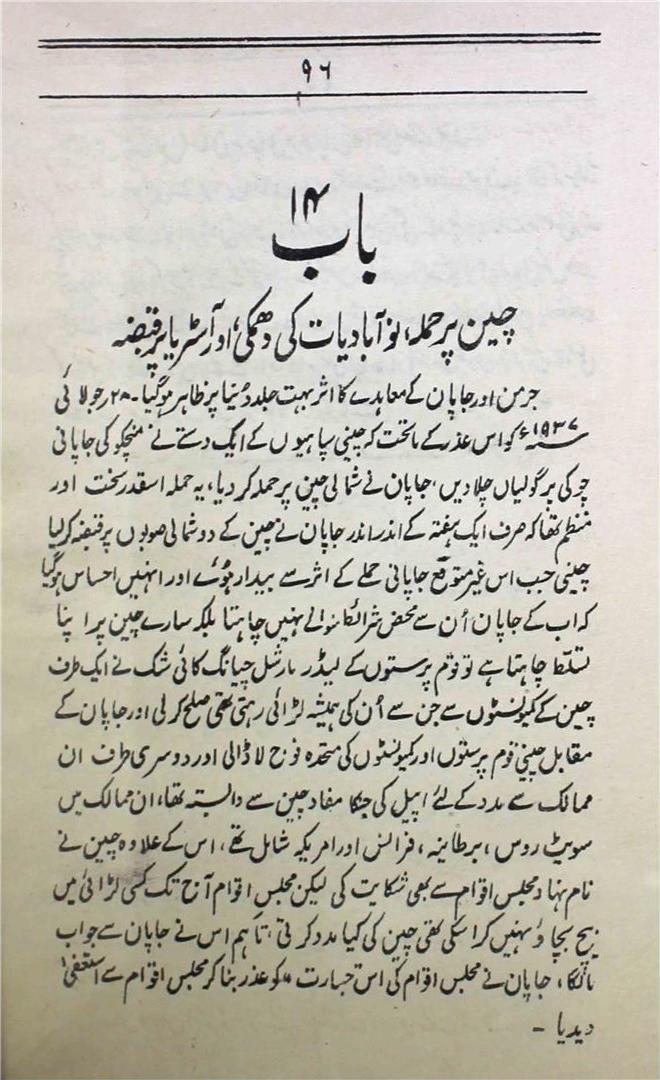 ۹۶
باب ۱۴
چین پر حملہ، نو آبادیات کی دھمکی اور آسٹریا پر قبضہ
جرمن اور جاپان کے معاہدے کا اثر بہت جلد دُنیا پر ظاہر ہو گیا۔ ۲۸ر جولائی
۱۹۳۷ء کو اس عذر کے ماتحت کہ چینی سپاہیوں کے ایک دستے نے منچکو کی جاپانی
چوکی پر گولیاں چلا دیں، جاپان نے شمالی چین پر حملہ کر دیا، یہ حملہ اسقدر سخت اور
منظم تھا کہ صرف ایک ہفتہ کے اندر اندر جاپان نے چین کے دو شمالی صوبوں پر قبضہ کر لیا
چینی جب اس غیر متوقع جاپانی حملے کے اثر سے بیدار ہوئے اور انہیں احساس ہو گیا
کہ اب کے جاپان اُن سے محض شرائط منوالے نہیں چاہتا بلکہ سارے چین پر اپنا
تسلّط چاہتا ہے تو قوم پرستوں کے لیڈر مارشل چیانگ کائی شک نے ایک طرف
چین کے کمیونسٹوں سے جن سے اُن کی ہمیشہ لڑائی رہتی تھی صلح کر لی اور جاپان کے
مقابل چینی قوم پرستوں اور کمیونسٹوں کی متحدہ فوج لا ڈالی اور دوسری طرف ان
ممالک سے مدد کے لئے اپیل کی جنکا مفاد چین سے وابستہ تھا، ان ممالک میں
سویٹ روس، برطانیہ، فرانس اور امریکہ شامل تھے، اس کے علاوہ چین نے
نام نہاد مجلس اقوام سے بھی شکایت کی لیکن مجلس اقوام آج تک کسی لڑائی میں
بیچ بچاؤ نہیں کرا سکی تھی چین کی کیا مدد کرتی، تاہم اس نے جاپان سے جواب
مانگا، جاپان نے مجلس اقوام کی اس جسارت "کو عذر بنا کر مجلس اقوام سے استعفیٰ
دیدیا -